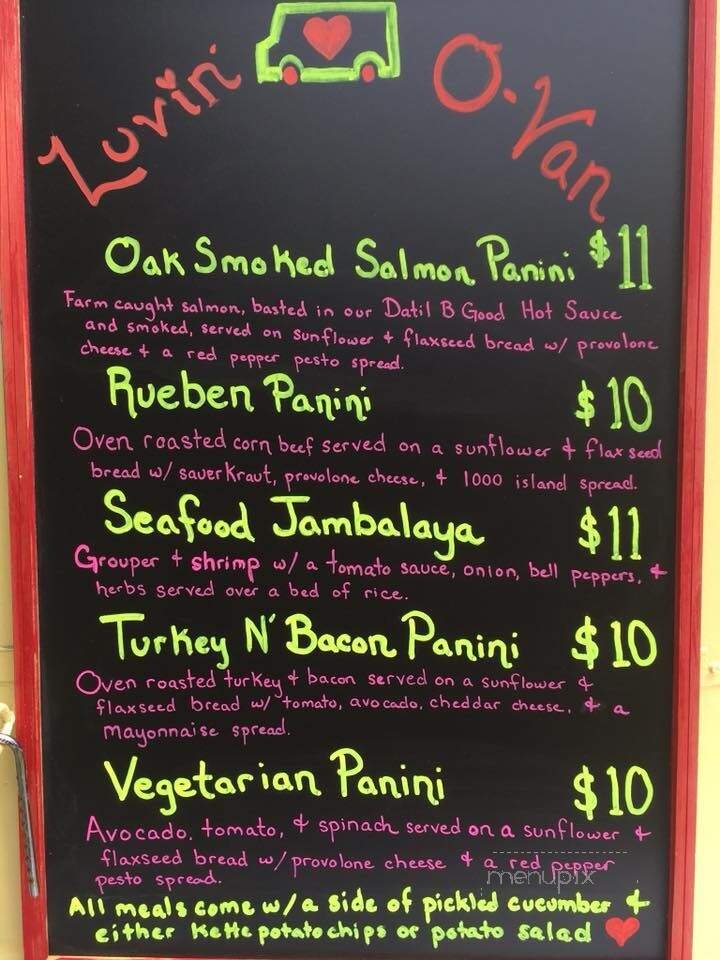 Luvin' O-Van
Oak Smoked Salmon Panini $11
Farm caught salmon, basted in our Datil B Good Hot Sauce
and smoked, served on sunflower + flaxseed bread w/ provolone
cheese + a red pepper pesto spread.
Rueben Panini $10
Oven roasted corn beef served on a sunflower + flax seed
bread w/ sauerkraut, provolone cheese, + 1000 island spread.
Seafood Jambalaya $11
Grouper + shrimp w/ a tomato sauce, onion, bell peppers, +
herbs served over a bed of rice.
Turkey N' Bacon Panini $10
Oven roasted turkey + bacon served on a sunflower +
flaxseed bread w/ tomato, avocado, cheddar cheese, + a
Mayonnaise spread.
Vegetarian Panini $10
Avocado, tomato, + spinach served on a sunflower +
flaxseed bread w/ provolone cheese + a red pepper
pesto spread.
menupix
All meals come w/ a side of pickled cucumber +
either Kettle potato chips or potato salad